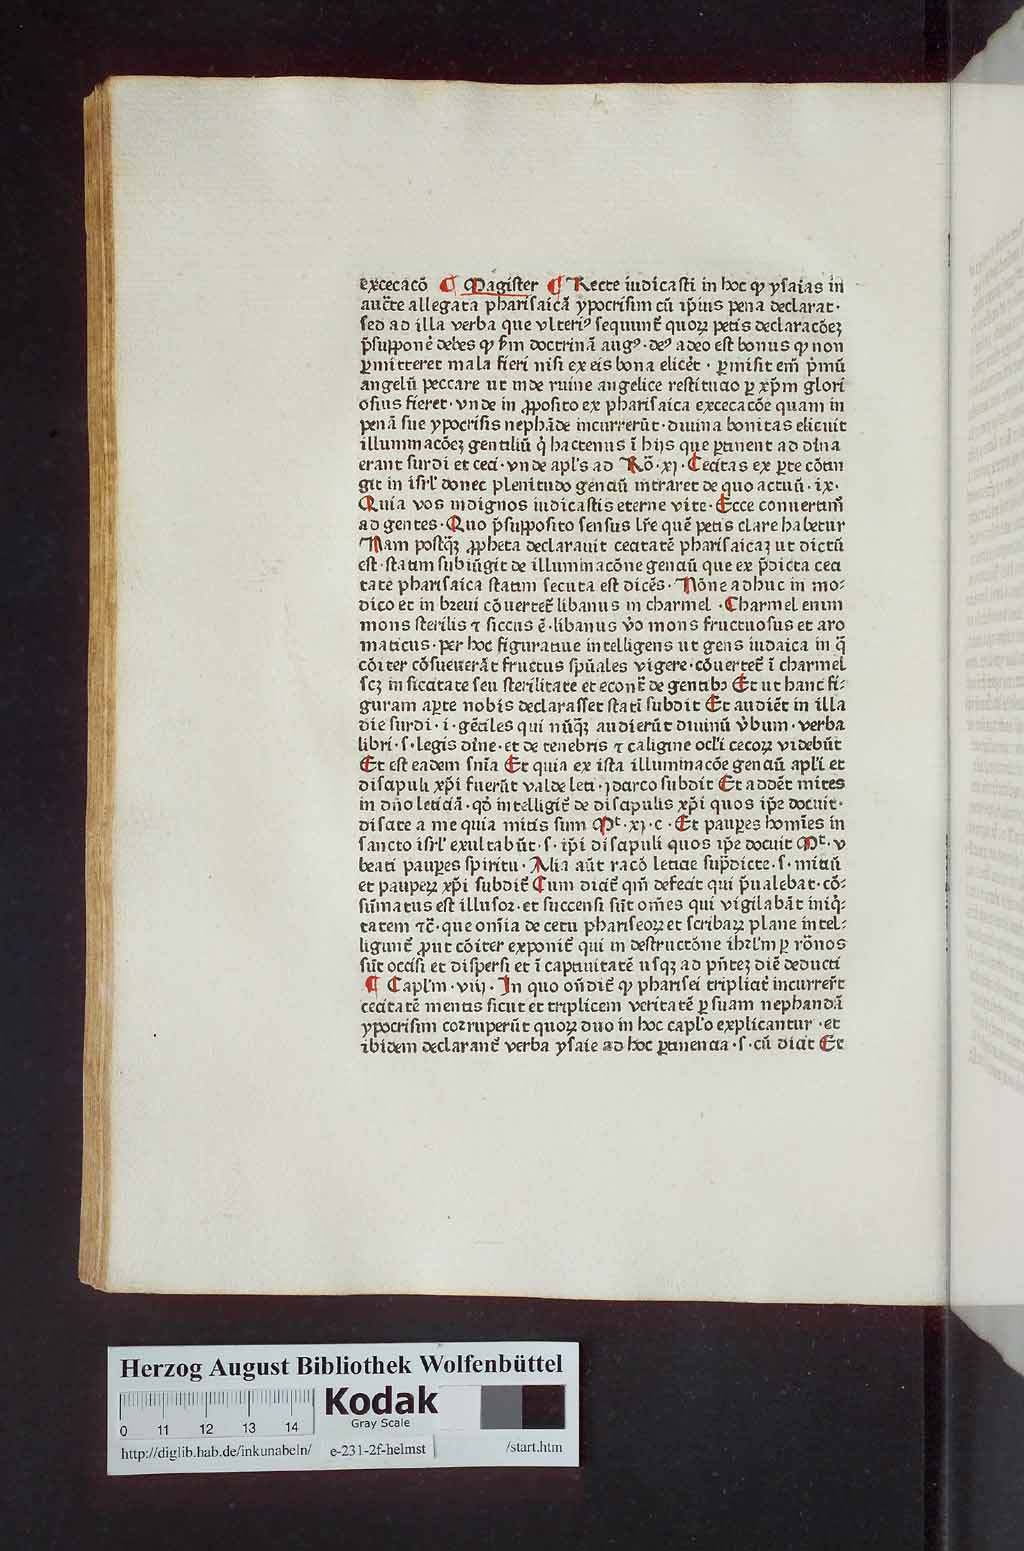 excecacõ ¶ Magister ¶ Recte iudicasti in hoc ꝙ ysaias in
auc̃te allegata pharisaicã ypocrisim cũ ip̃ius pena declarat·
sed ad illa verba que vlteriꝰ sequunt᷑ quoꝝ petis declaracõeꝫ
p̃supponẽ debes ꝙ s̃m doctrinã augꝰ·deꝰ adeo est bonus ꝙ non
ꝑmitteret mala fieri nisi ex eis bona elicẽt · ꝑmisit em̃ p̃mũ
angelũ peccare ut inde ruine angelice restitucio ꝑ xp̃m glori
osius fieret·vnde in ꝓposito ex pharisaica excecacõe quam in
penã sue ypocrisis nephãde incurrerũt·diuina bonitas elicuit
illuminacõeꝫ gentiliũ q̇ hactenus ĩ hijs que ꝑtinent ad diĩna
erant surdi et ceci·vnde apl's ad Rõ·xj·Cecitas ex ꝑte cõtin
git in isrl' donec plenitudo genciũ intraret de quo actuũ·ix·
Quia vos indignos iudicastis eterne vite·Ecce conuertim᷑
ad gentes·Quo p̃supposito sensus lr̃e quẽ petis clare habetur
Nam postq̃ꝫ ꝓpheta declarauit cecitatẽ pharisaicaꝫ ut dictũ
est·statim subiũgit de illuminacõne genciũ que ex p̃dicta ceci
tate pharisaica statim secuta est dicẽs·Nõne adhuc in mo⸗
dico et in breui cõuertet᷑ libanus in charmel·Charmel enim
mons sterilis ⁊ siccus ẽ·libanus v̾o mons fructuosus et aro
maticus·per hoc figuratiue intelligens ut gens iudaica in q̃
cõiter cõsueuerãt fructus sp̃uales vigere·cõuertet᷑ ĩ charmel
scꝫ in siccitate seu sterilitate et econt᷑ de gentibꝫ Et ut hanc fi⸗
guram aꝑte nobis declarasset statĩ subdit Et audiẽt in illa
die surdi·i·gẽtiles qui nũq̃ꝫ audierũt diuinũ v̾bum·verba
libri·s·legis diĩne·et de tenebris ⁊ caligine ocl'i cecoꝝ videbũt
Et est eadem sn̄ia Et quia ex ista illuminacõe genciũ apl'i et
discipuli xp̃i fuerũt valde leti·jdcirco subdit Et addẽt mites
in dño leticiã·qd̃ intelligit᷑ de discipulis xp̃i quos ip̃e docuit·
discite a me quia mitis sum Mᵗ·xj·c·Et pauꝑes homĩes in
sancto isrl' exultabũt·s·ip̃i discipuli quos ip̃e docuit Mᵗ·v
beati pauꝑes spiritu·Alia aũt racõ leticie sup̃dicte·s·mitiũ
et pauꝑeꝝ xp̃i subdit᷑ Cum dicit᷑ qm̃ defecit qui p̃ualebat·cõ⸗
sũmatus est illusor·et succensi sũt om̃es qui vigilabãt iniq̇⸗
tatem ⁊c̃·que om̃ia de cetu phariseoꝝ et scribaꝝ plane intel⸗
ligunt᷑ ꝓut cõiter exponit᷑ qui in destructõne ihrl'm ꝑ rõnos
sũt occisi et dispersi et ĩ captiuitatẽ usqꝫ ad pñteꝫ diẽ deducti
¶ Capl'm·viij·In quo oñdit᷑ ꝙ pharisei tripliciť incurrer̃t
cecitatẽ mentis sicut et triplicem veritatẽ ꝑ suam nephandã
ypocrisim corruperũt quoꝝ duo in hoc capl'o explicantur·et
ibidem declarant᷑ verba ysaie ad hoc ꝑtinencia·s·cũ dicit Et
Herzog August Bibliothek Wolfenbüttel
0 11 12 13 14 Kodak
Gray Scale
http://diglib.hab.de/inkunabeln/ e-231-2f-helmst /start.htm